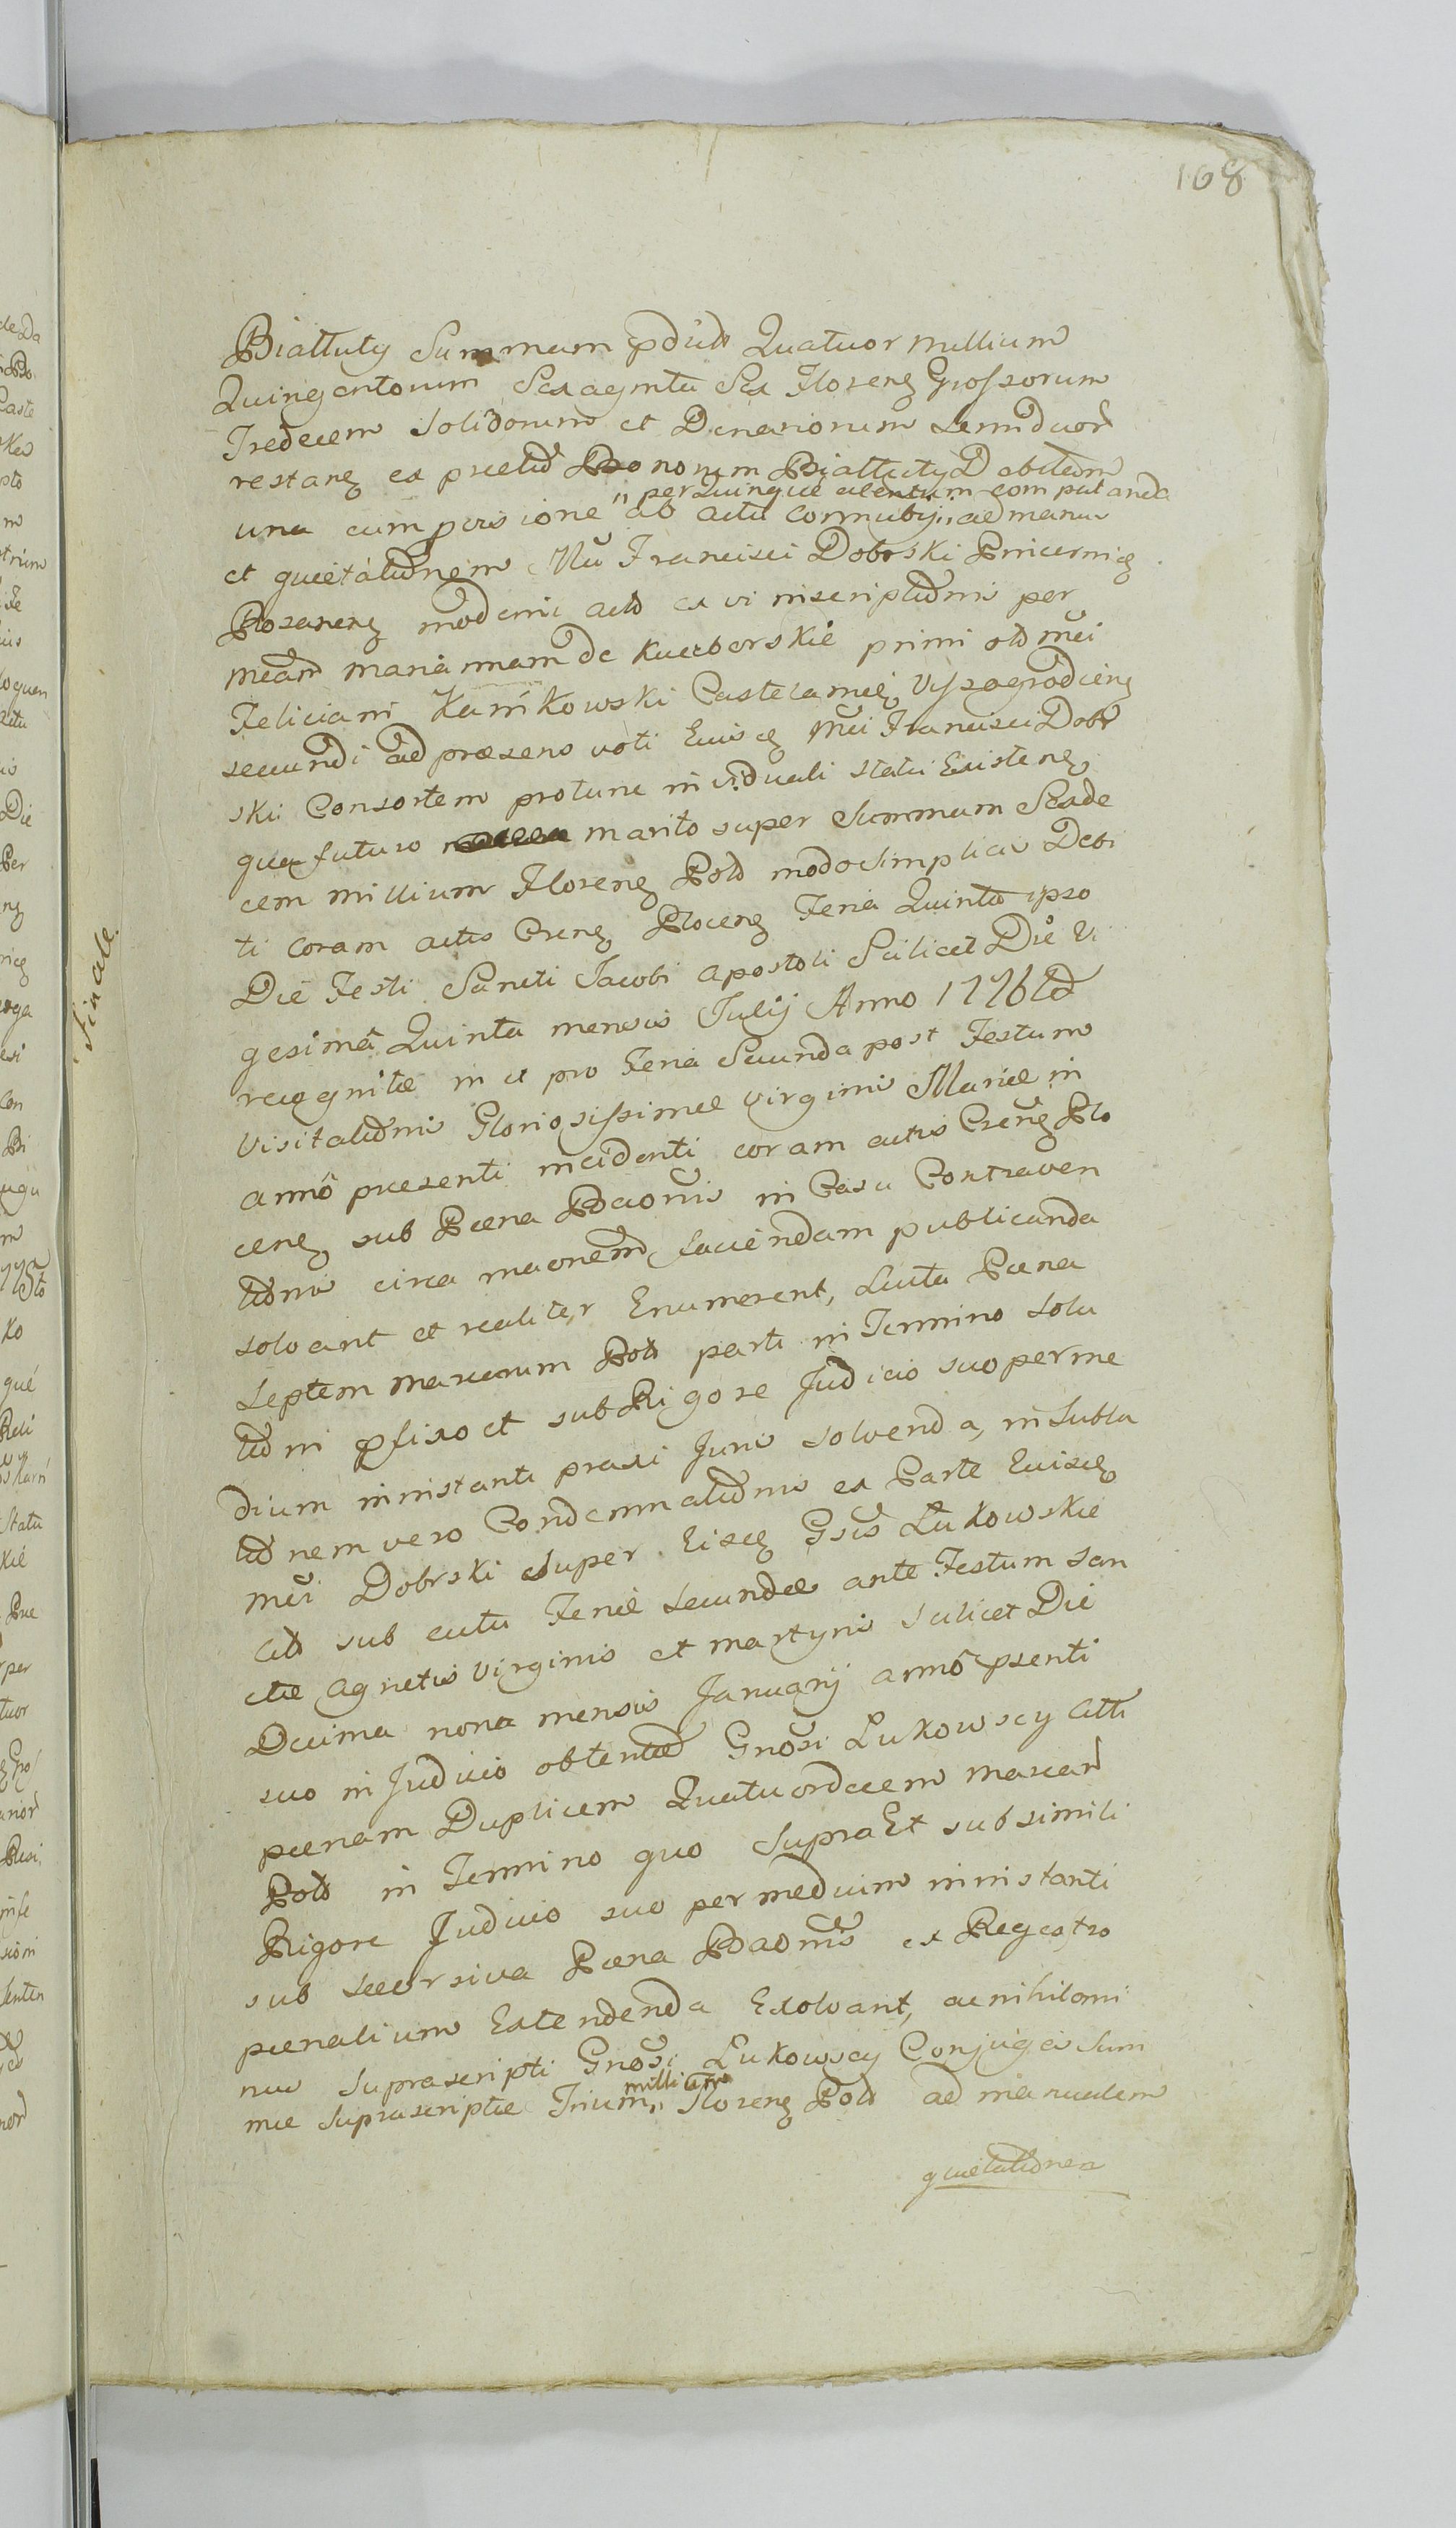 168
Biattuty Summam pdict Quatuor millium
Quingentorum Sexaginta Sex Floreng Grossorum
Tredecem Solidorum et Denariorum Semiduor
restang ex pretio Bonorum Biattuty Debitam
una cum provisione " ab actu connubij " ad manus
" per Quinque a centum computanda
et quietationem Mci Francisci Dobrski Pincernæ
Rosaneng moderni acto ex vi inscriptionis per
meam mariannam de Kuczborskie primi olo mci
Feliciani Karnkowski Castelanei Vyszogrodieng
secundi ad præsens voti Eiusdem Mci Francisci Dobr
ski Consortem protunc in viduali statu Existeng
quæ futuro marito super Summam Sede
cem millium Floreng Polo modo Simplicis Debi
ti coram actis Creng Ploceng Feria Quinta ipso
Die Festi Sancti Jacobi Apostoli Scilicet Die Vi
gesimâ Quinta mensis Julij Anno 1776to
recognitæ in et pro Feria Secunda post Festum
Visitationis Gloriosissimæ Virginis Mariæ in
annô præsenti incidenti coram actis Creng Plo
ceng sub Pæna Baonis in Casu Contraven
tionis circa maonem faciendam publicanda
solvant et realiter Enumerent, Luita Pæna
Septem marcarum Polo parti in Termino solu
tioni pfixo et sub Rigore Judicio suo per me
dium ministanti praxi Juris solvenda, in Subla
tionem vero Condemnationis ex Parte Eiusdem
mci Dobrski Super Eisdem Gsis Łukowskie
Cito sub actu Feriæ Secundæ ante Festum San
ctæ Agnetis Virginis et martyris Scilicet Die
Decima nona mensis Januarij annô psenti
suo in Judicio obtentæ Gnosi Łukowscy Citti
pænam Duplicem Quatuordecem marcar
Polo in Termino quo Supra Et sub simili
Rigore Judicio suo per medium ministanti
sub Secursiva Pæna Baonis ex Regestro
pænalium Extendenda Exolvant, ac nihilomi
nus Suprascripti Gnosi Łukowscy Conjuges Sum
mæ Suprascriptæ Trium " millium Floreng Polo ad manualem
quietationem
Finale